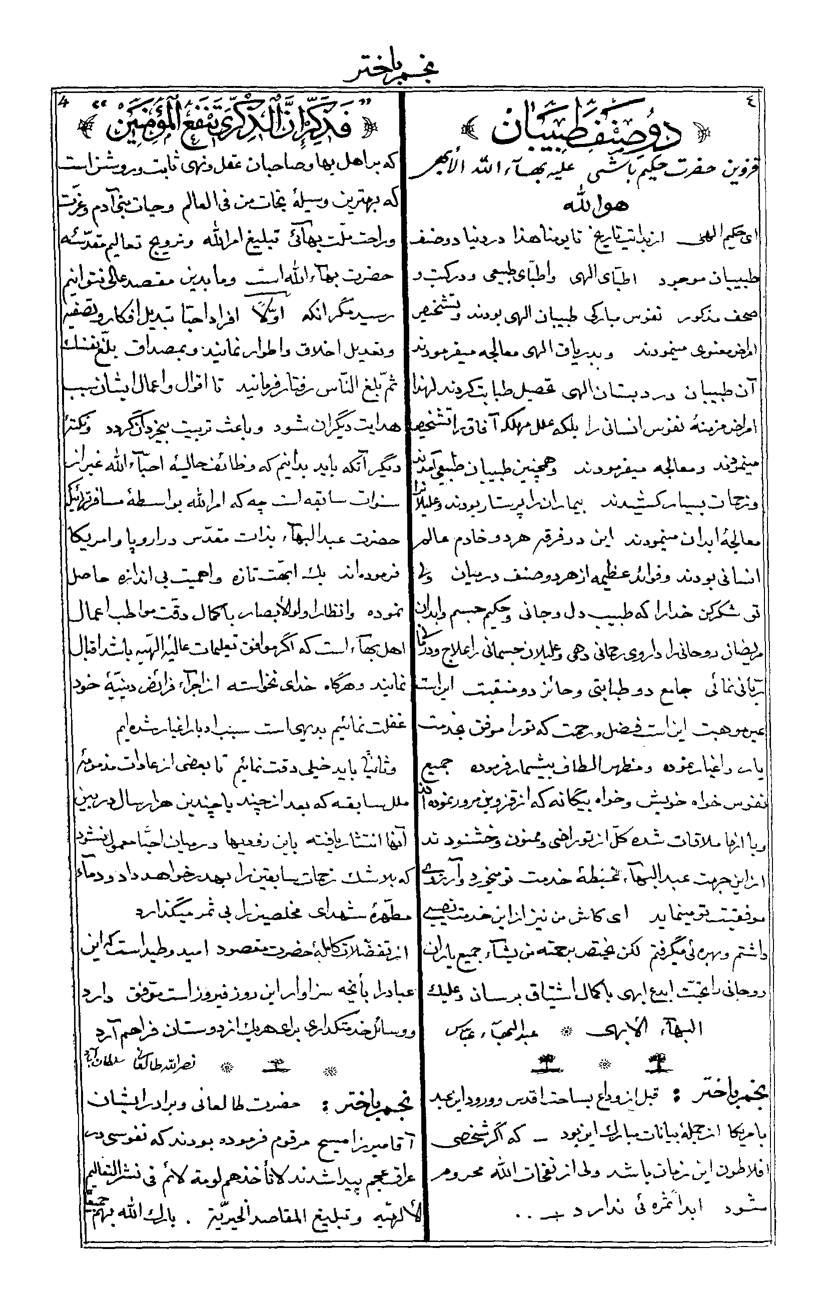 نجم باختر
٤
دو صنف طبیبان
قزوین حضرت حکیم باشی علیه بهآء الله الأبهی
هو الله
ای حکیم الهی از بدایت تاریخ تا یومنا هذا در دنیا دو صنف
طبیبان موجود اطبّای الهی و اطبّای طبیعی و در کتب و
صحف مذکور نفوس مبارکی طبیبان الهی بودند و تشخیص
امراض معنوی مینمودند و بدریاق الهی معالجه میفرمودند
آن طبیبان در دبستان الهی تحصیل طبابت کردند لهذا
امراض مزمنهٔ نفوس انسانی را بلکه علل مهلکهٔ آفاق را تشخیص
مینمودند و معالجه میفرمودند و همچنین طبیبان طبیعی آمدند
و زحمات بسیار کشیدند بیماران را پرستار بودند و علیلان را
معالجهٔ ابدان مینمودند این دو فرقه هر دو خادم عالم
انسانی بودند و فوائد عظیمه از هر دو صنف در میان ولی
تو شکر کن خدا را که طبیب دل و جانی و حکیم جسم و ابدان
مریضان روحانی را داروی رحمانی دهی و علیلان جسمانی را علاج و درمان
ربّانی نمائی جامع دو طبابتی و حائز دو منقبت این است
عین موهبت این است فضل و رحمت که تو را موفق بخدمت
یار و اغیار نموده و مظهر الطاف بیشمار فرموده جمیع
نفوس خواه خویش و خواه بیگانه که از قزوین مرور نموده اند
و با آنها ملاقات شده کل از تو راضی و ممنون و خشنودند
از این جهت عبدالبهآء غبطهٔ خدمت تو میخورد و آرزوی
موفقیت تو مینماید ای کاش من نیز از این خدمت نصیبی
داشتم و بهره ئی میگرفتم لکن یختص برحمته من یشآء جمیع یاران
روحانی را تحیّت ابدع ابهی با کمال اشتیاق برسان و علیک
البهآء الأبهی * عبدالبهآء عباس
نجم باختر : قبل از وداع بساحت اقدس و ورود این عبد
بامریکا از جملهٔ بیانات مبارک این بود – که اگر شخصی
افلاطون این زمان باشد ولی از نفحات الله محروم
شود ابداً ثمره ئی ندارد – ..
4
" فَذَکِّر اِنَّ الذِّکری تَنفَعُ المُؤمِنین "
که بر اهل بها و صاحبان عقل و نهی ثابت و روشن است
که بهترین وسیلهٔ نجات من فی العالم و حیات بنی آدم و عزّت
و راحت ملّت بهائی تبلیغ امر الله و ترویج تعالیم مقدّسهٔ
حضرت بهآء الله است و ما بدین مقصد عالی نتوانیم
رسید مگر انکه اوّلاً افراد احبّا تبدیل افکار و تصفیه
و تعدیل اخلاق و اطوار نمایند و بمصداق بلّغ نفسک
ثم بلّغ النّاس رفتار فرمائید تا اقوال و اعمال ایشان سبب
هدایت دیگران شود و باعث تربیت بیخردان گردد و نکتهٔ
دیگر آنکه باید بدانیم که وظائف حالیهٔ احبآء الله غیر از
سنوات سابقه است چه که امر الله بواسطهٔ مسافرتهائیکه
حضرت عبد البهآء بذات مقدّس در اروپا و امریکا
فرموده اند یک ابهّت تازه و اهمیت بی اندازه حاصل
نموده و انظار اولو الأبصار با کمال دقّت مواظب اعمال
اهل بهآء است که اگر موافق تعلیمات عالیهٔ الهیّه باشد اقبال
نمایند و هرگاه خدای نخواسته از اجرآء فرائض دینیّهٔ خود
غفلت نمائیم بدیهی است سبب ادبار اغیار شده ایم
و ثانیاً باید خیلی دقت نمائیم تا بعضی از عادات مذمومهٔ
ملل سابقه که بعد از چند یا چندین هزار سال در بین
آنها انتشار یافته باین زودیها در میان احبّا معمول نشود
که بلا شک زحمات سابقین را بهدر خواهد داد و دمآء
مطهّرهٔ شهدای مخلصین را بی ثمر میگذارد
از تفضّلات کاملهٔ حضرت مقصود امید وطید است که این
عباد را بآنچه سزاوار این روز فیروز است موفق دارد
و وسائل خدمتگذاری برای هر یک از دوستان فراهم آرد
نصر الله طالقانی سلطان آباد
نجم باختر : حضرت طالقانی و برادر ایشان
آقا میرزا مسیح مرقوم فرموده بودند که نفوسی در
عراق عجم پیدا شدند لا تأخذهم لومة لائم فی نشر التعالیم
الألهیّه و تبلیغ المقاصد الخیریّة . بارک الله بهم جمیعاً